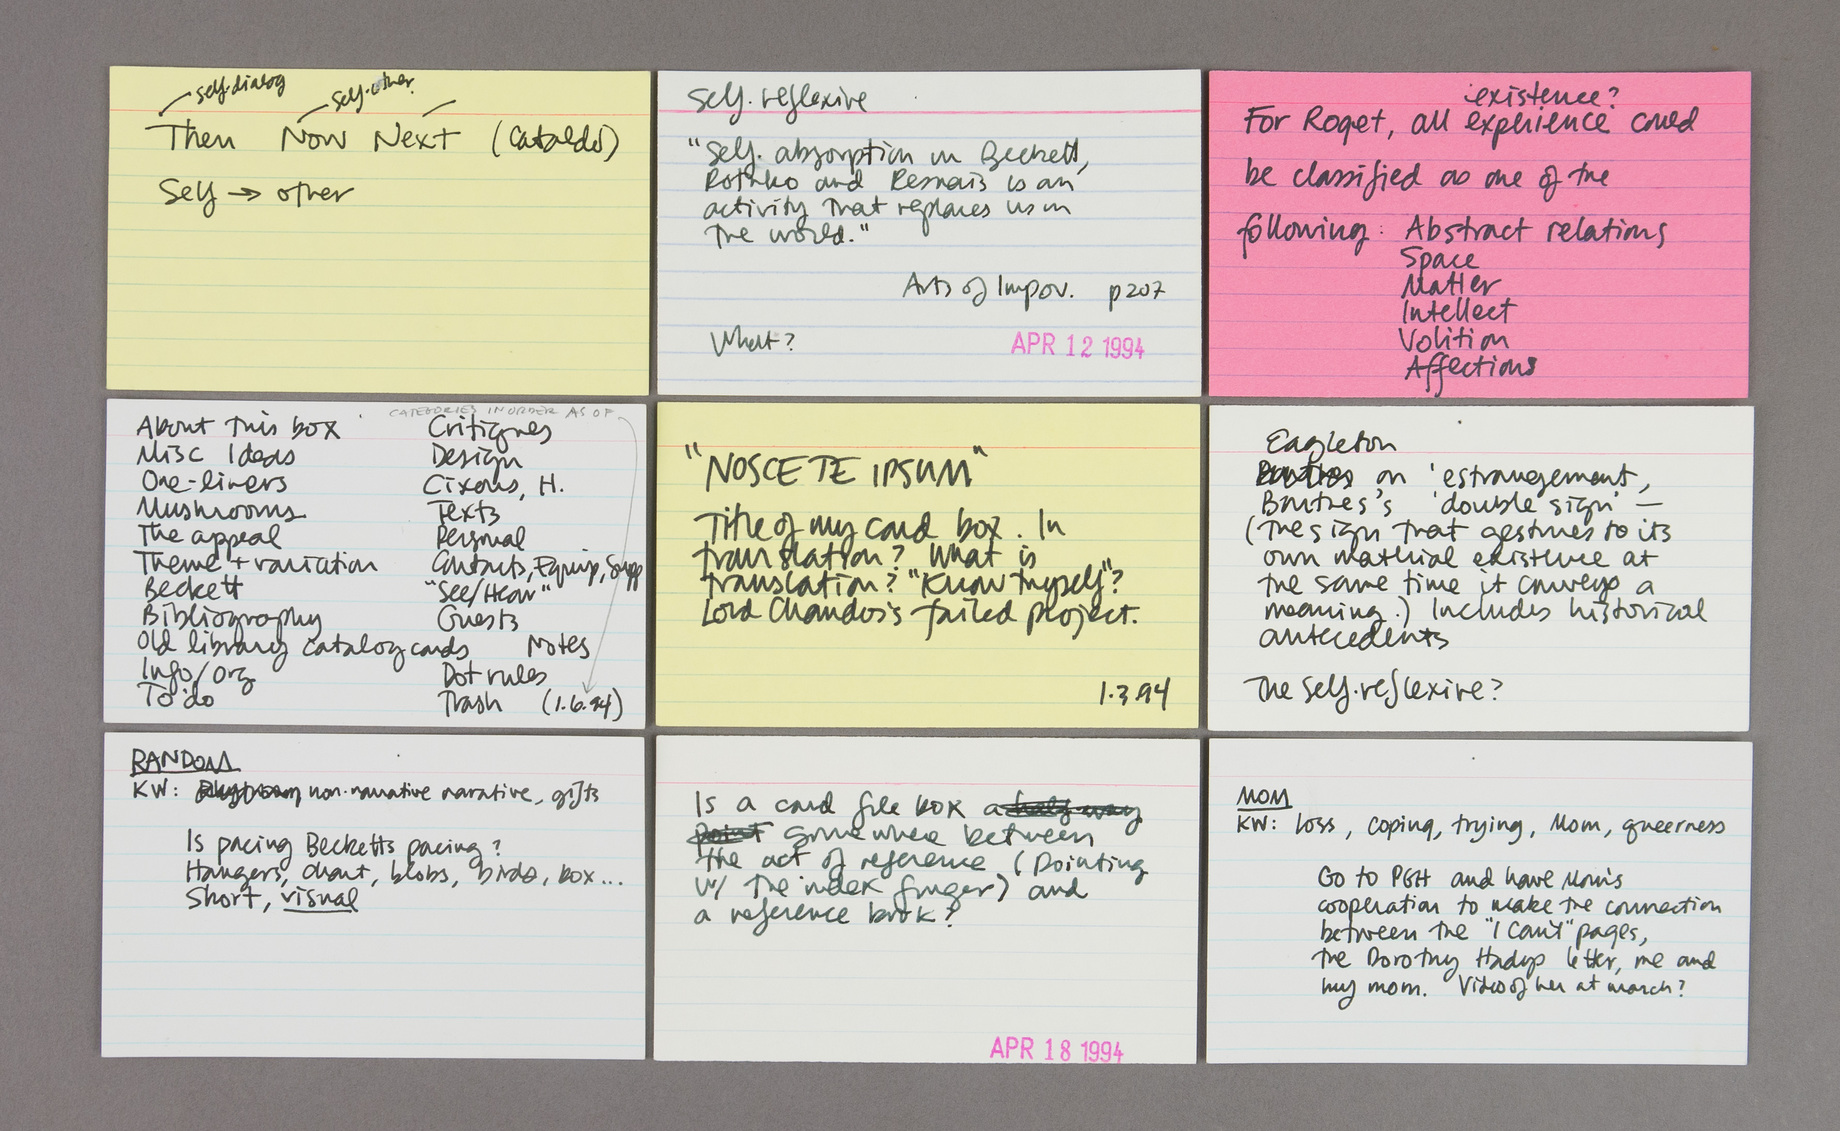 self-dialog
self-other
Then Now Next (Cataldi)
Self → other
Self-reflexive
"Self-absorption in Beckett,
Rothko and Resnais is an
activity that replaces us in
the world."
Arts of Impov. p207
What?
APR 12 1994
existence?
For Roget, all experience could
be classified as one of the
following: Abstract relations
Space
Matter
Intellect
Volition
Affections
CATEGORIES IN ORDER AS OF
About this box
Misc Ideas
One-liners
Mushrooms
The appeal
Theme + variation
Beckett
Bibliography
Old library catalog cards
Info/Org
To do
Critiques
Design
Cixous, H.
Texts
Personal
Contacts, Equip, Supp
"See/Hear"
Guests
Notes
Dot rules
Trash (1.6.94)
"NOSCE TE IPSUM"
Title of my card box. In
translation? What is
translation? "Know thyself"?
Lord Chandos's failed project.
1.3.94
Eagleton
on 'estrangement,
Barthes's 'double sign' —
(the sign that gestures to its
own material existence at
the same time it conveys a
meaning.) Includes historical
antecedents
The self-reflexive?
RANDOM
KW: non-narrative narrative, gifts
Is pacing Becketts pacing?
Hangers, chant, blobs, birds, box...
Short, visual
Is a card file box a half-way
point somewhere between
the act of reference (pointing
w/ the index finger) and
a reference book?
APR 18 1994
MOM
KW: loss, coping, trying, Mom, queerness
Go to PGH and have Mom's
cooperation to make the connection
between the "I Can't" pages,
the Dorothy letter, me and
my mom. Video of her at march?